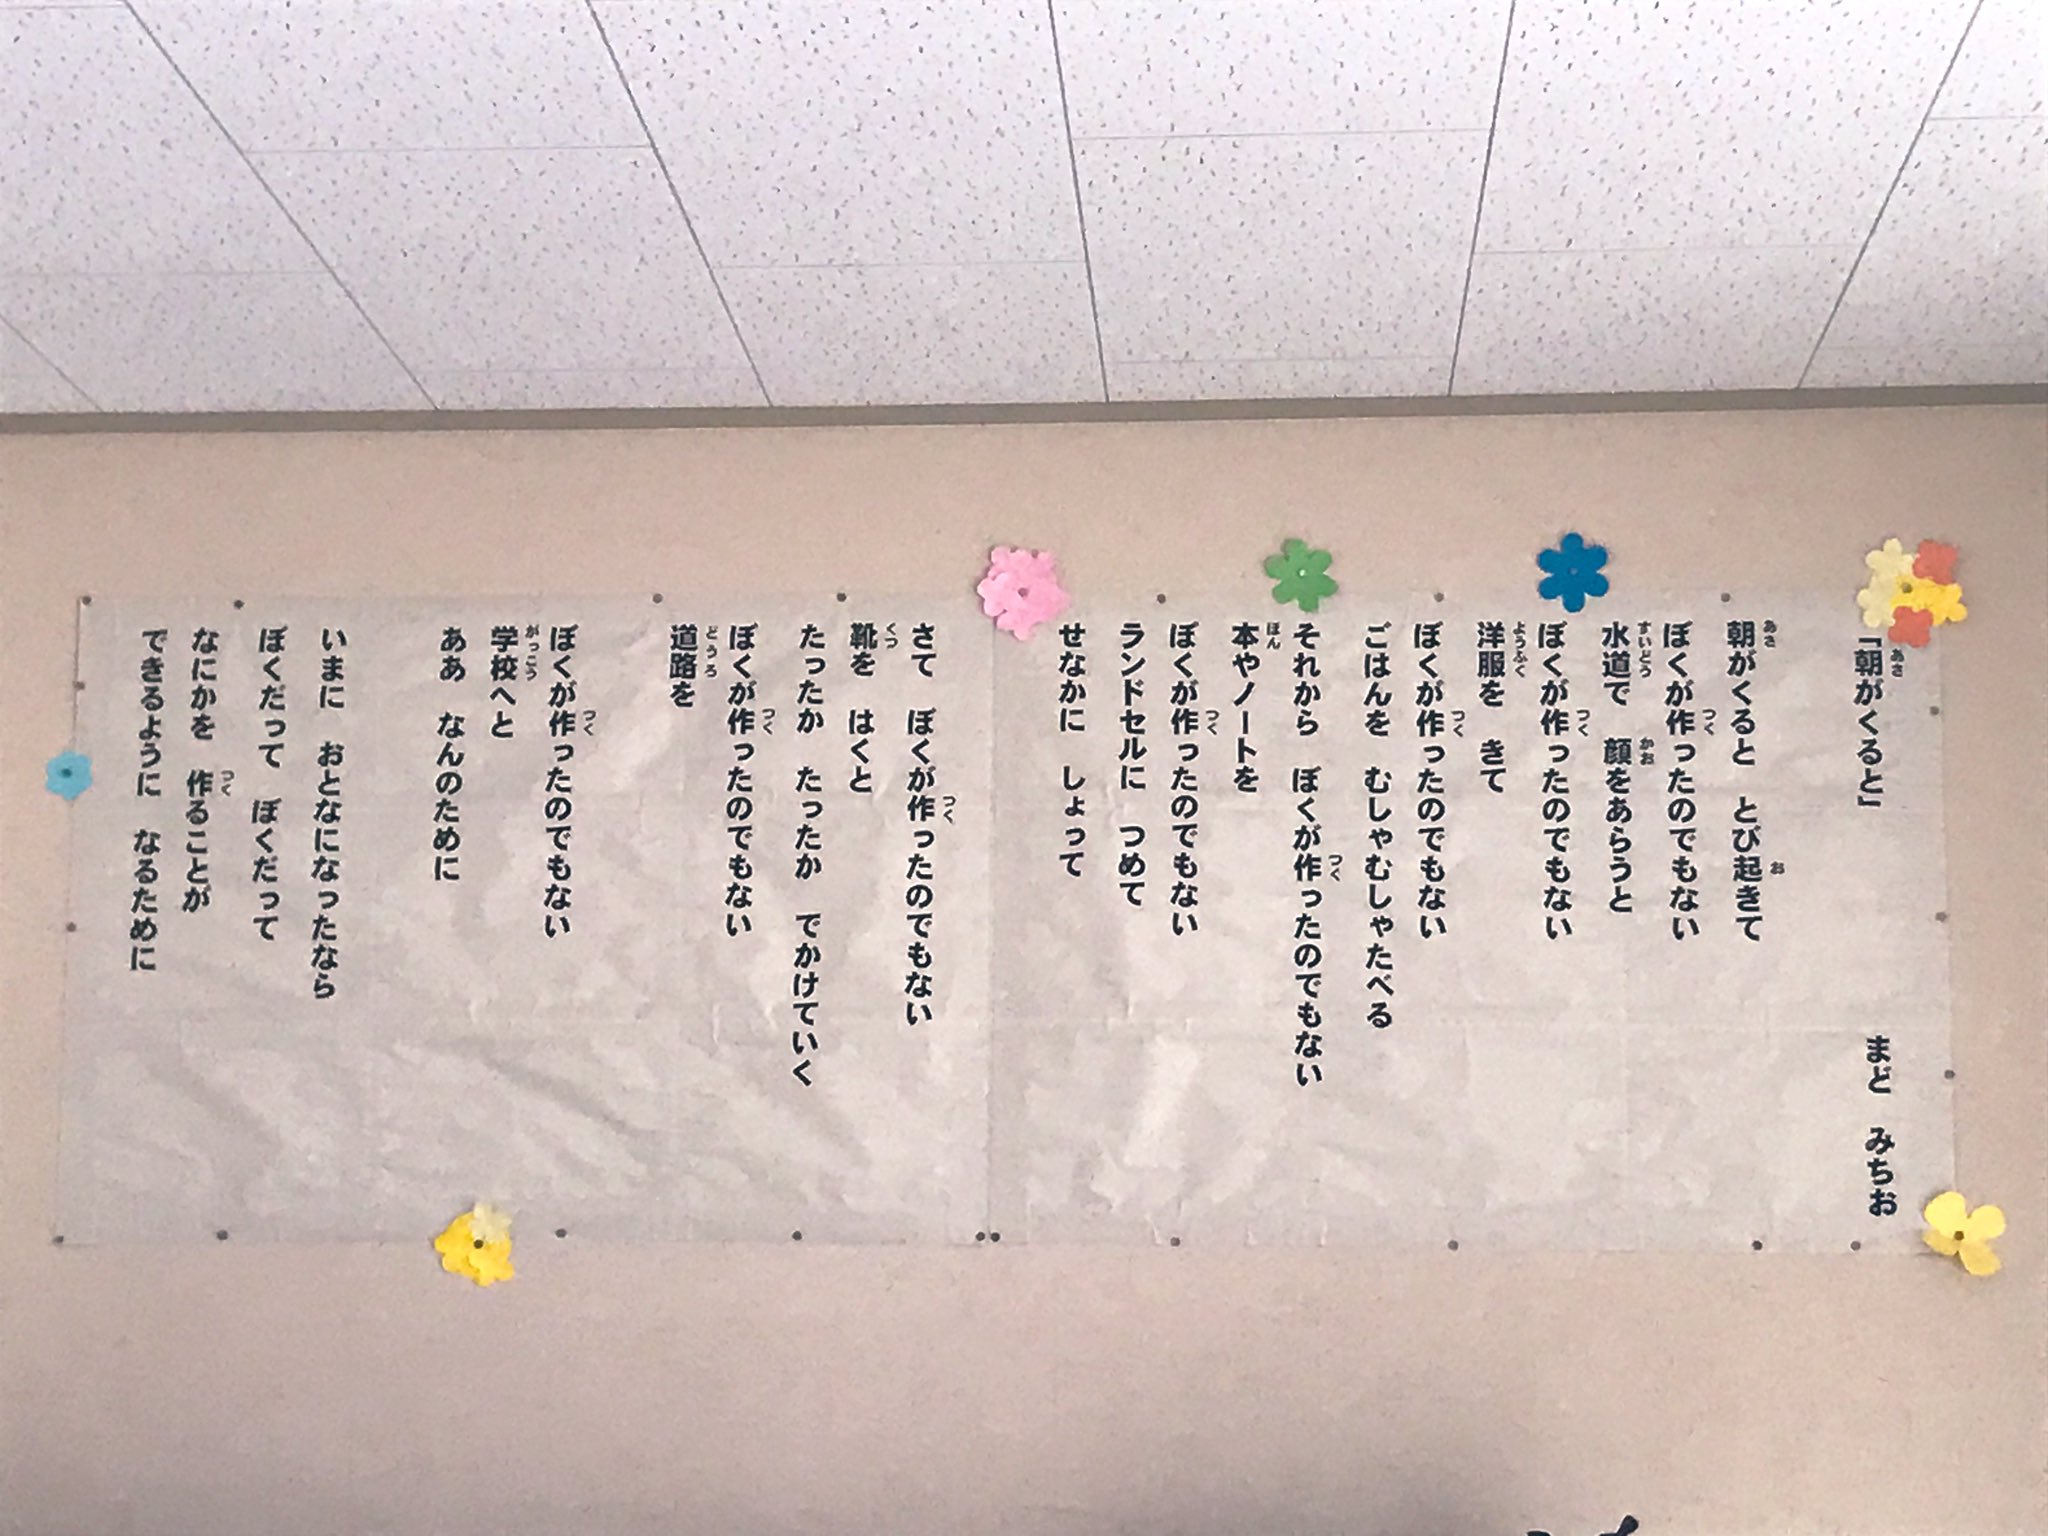 「朝がくると」
まど みちお
朝がくると とび起きて
ぼくが作ったのでもない
水道で 顔をあらうと
ぼくが作ったのでもない
洋服を きて
ぼくが作ったのでもない
ごはんを むしゃむしゃたべる
それから ぼくが作ったのでもない
本やノートを
ぼくが作ったのでもない
ランドセルに つめて
せなかに しょって
さて ぼくが作ったのでもない
靴を はくと
たったか たったか でかけていく
ぼくが作ったのでもない
道路を
ぼくが作ったのでもない
学校へと
ああ なんのために
いまに おとなになったなら
ぼくだって ぼくだって
なにかを 作ることが
できるように なるために